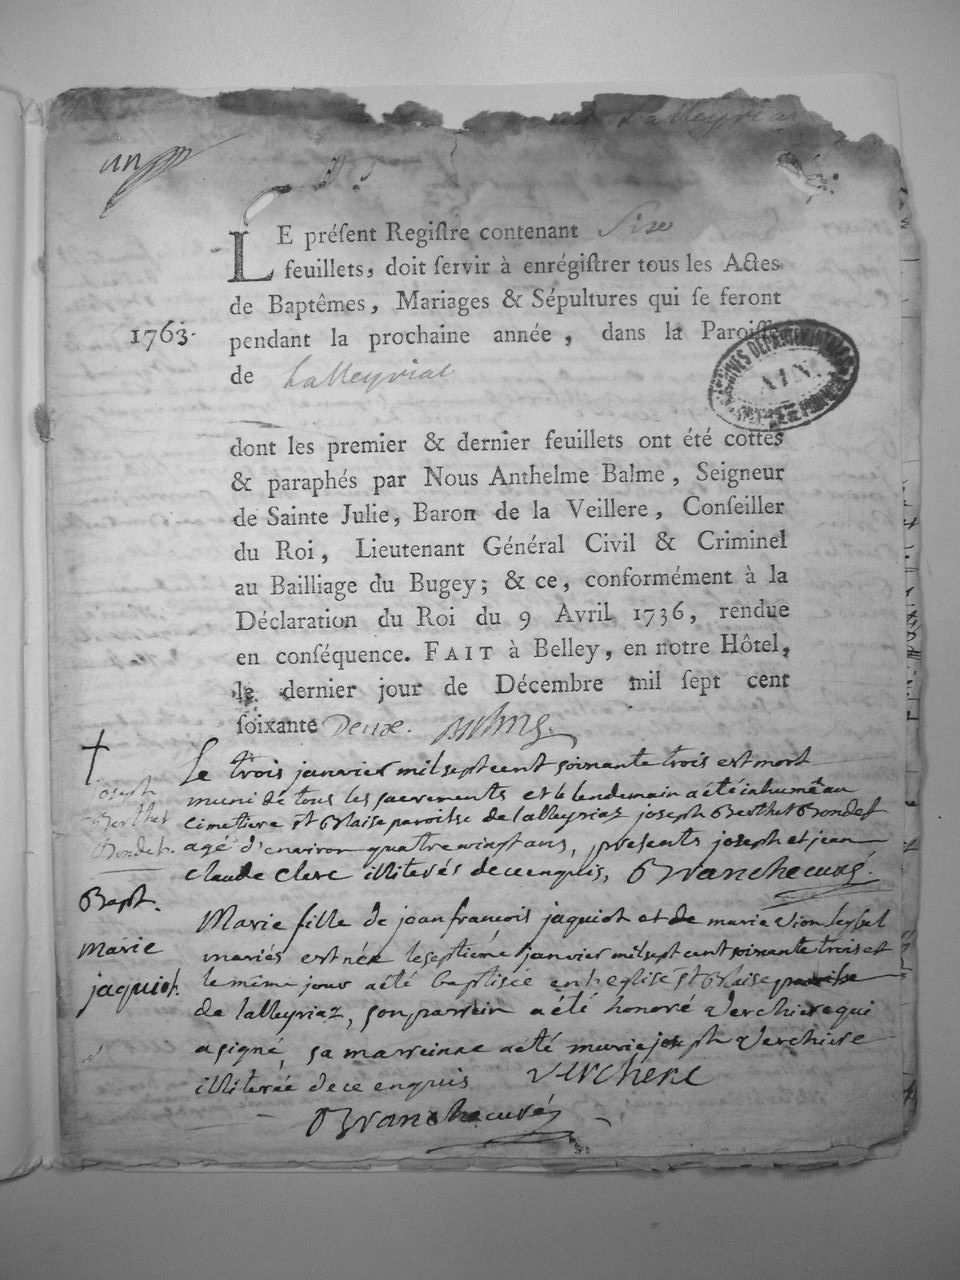 Lalleyria
un
LE préſent Regiſtre contenant Sixe
feuillets, doit ſervir à enrégiſtrer tous les Actes
de Baptêmes, Mariages & Sépultures qui ſe feront
1763.
pendant la prochaine année, dans la Paroiſſe
de Lalleyriat
ARCHIVES DEPARTEMENTALES
AIN
dont les premier & dernier feuillets ont été cottés
& paraphés par Nous Anthelme Balme, Seigneur
de Sainte Julie, Baron de la Veillere, Conſeiller
du Roi, Lieutenant Général Civil & Criminel
au Bailliage du Bugey; & ce, conformément à la
Déclaration du Roi du 9 Avril 1736, rendue
en conſéquence. FAIT à Belley, en notre Hôtel,
le dernier jour de Décembre mil ſept cent
ſoixante Deux.
joseph
Berthet
Bondet.
Le trois janvier mil sept cent soixante trois est mort
muni de tous les sacrements et le lendemain a été inhumé au
cimetiere st Blaise paroisse de lalleyriaz joseph Berthet Bondet
agé d'environ quatre vingt ans, présents joseph et jean
claude clerc illiterés de ce enquis, Branche curé.
Bapt.
marie
jaquiot.
Marie fille de jean francois jaquiot et de marie
mariés est née le septieme janvier mil sept cent soixante trois et
le même jour a été baptisée en l'eglise st Blaise paroisse
de lalleyriaz, son parrein a été honoré Verchere qui
a signé, sa marreinne a été marie joseph Verchere
illiterée de ce enquis Verchere
Branche curé